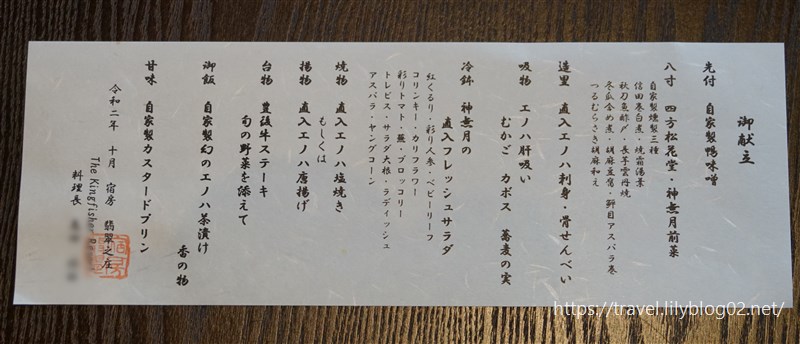 御献立
先付　自家製鴨味噌
八寸　四方松花堂・神無月前菜
自家製燻製三種
信田巻白煮・焼霜湯葉
秋刀魚酢〆・長芋雲丹焼
冬瓜含め煮・胡麻豆腐・野目アスパラ巻
つるむらさき胡麻和え
造里　直入エノハ刺身・骨せんべい
吸物　エノハ肝吸い
むかご　カボス　蕎麦の実
冷鉢　神無月の
直入フレッシュサラダ
紅くるり・彩り人参・ベビーリーフ
コリンキー・カリフラワー
彩りトマト・蕪・ブロッコリー
トレビス・サラダ大根・ラディッシュ
アスパラ・ヤングコーン
焼物　直入エノハ塩焼き
もしくは
揚物　直入エノハ唐揚げ
台物　豊後牛ステーキ
旬の野菜を添えて
御飯　自家製幻のエノハ茶漬け
香の物
甘味　自家製カスタードプリン
令和二年　十月　宿房　翡翠之庄
The Kingfisher
料理長
https://travel.lilyblog02.net/